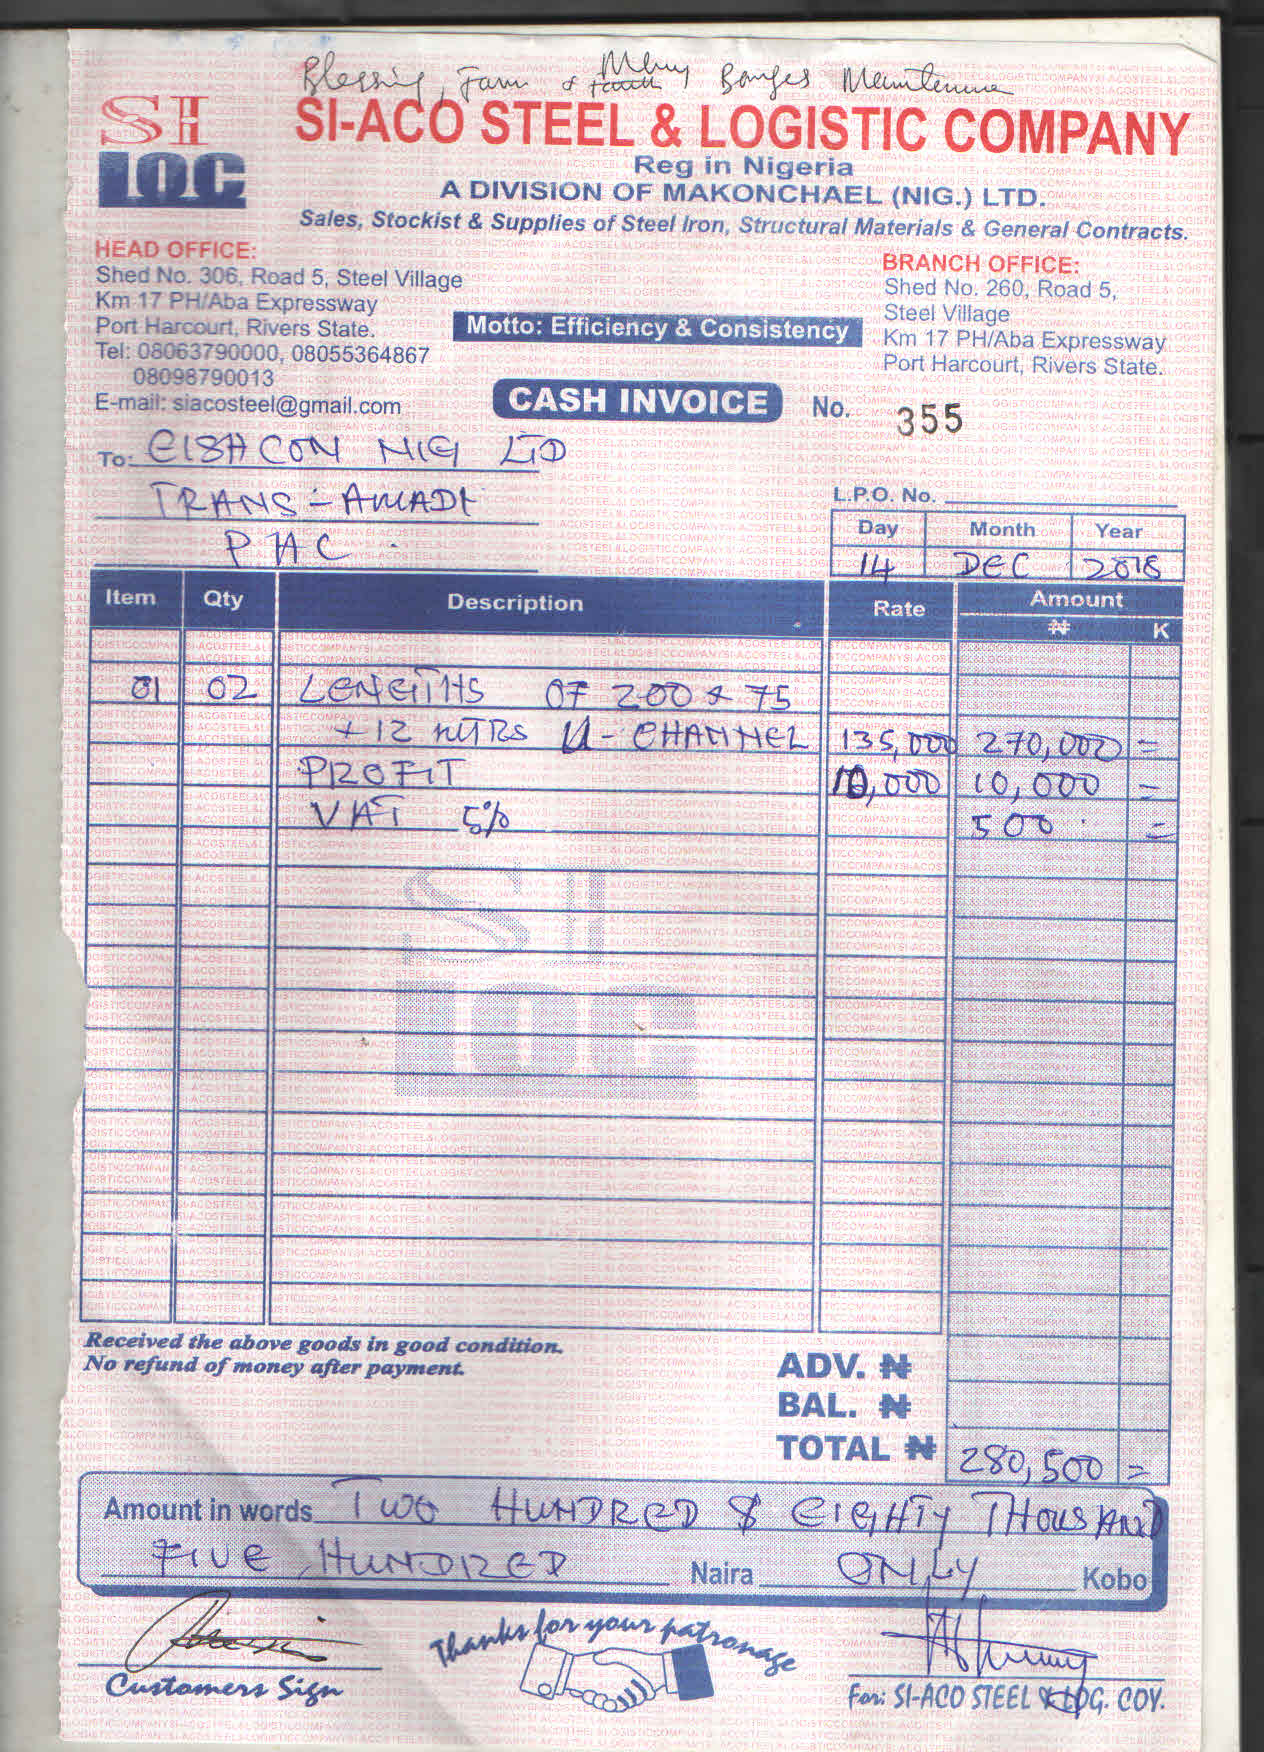 Blessing, Farm & Mbuy Barges Maintenance
SI
LOC
SI-ACO STEEL & LOGISTIC COMPANY
Reg in Nigeria
A DIVISION OF MAKONCHAEL (NIG.) LTD.
Sales, Stockist & Supplies of Steel Iron, Structural Materials & General Contracts.
HEAD OFFICE:
Shed No. 306, Road 5, Steel Village
Km 17 PH/Aba Expressway
Port Harcourt, Rivers State.
Tel: 08063790000, 08055364867
08098790013
E-mail: siacosteel@gmail.com
BRANCH OFFICE:
Shed No. 260, Road 5,
Steel Village
Km 17 PH/Aba Expressway
Port Harcourt, Rivers State.
Motto: Efficiency & Consistency
CASH INVOICE No. 355
To: EISHCON NIG LTD
TRANS-AMADI
PHC.
L.P.O. No.
Day Month Year
14 DEC 2018
Item Qty Description Rate Amount
₦ K
01 02 LENGTHS OF 200 x 75
x 12 MTRS U-CHANNEL 135,000 270,000 =
PROFIT 10,000 10,000 =
VAT 5% 500 =
Received the above goods in good condition.
No refund of money after payment.
ADV. ₦
BAL. ₦
TOTAL ₦ 280,500 =
Amount in words TWO HUNDRED & EIGHTY THOUSAND
FIVE HUNDRED Naira ONLY Kobo
Thanks for your patronage
Customers Sign
For: SI-ACO STEEL & LOG. COY.